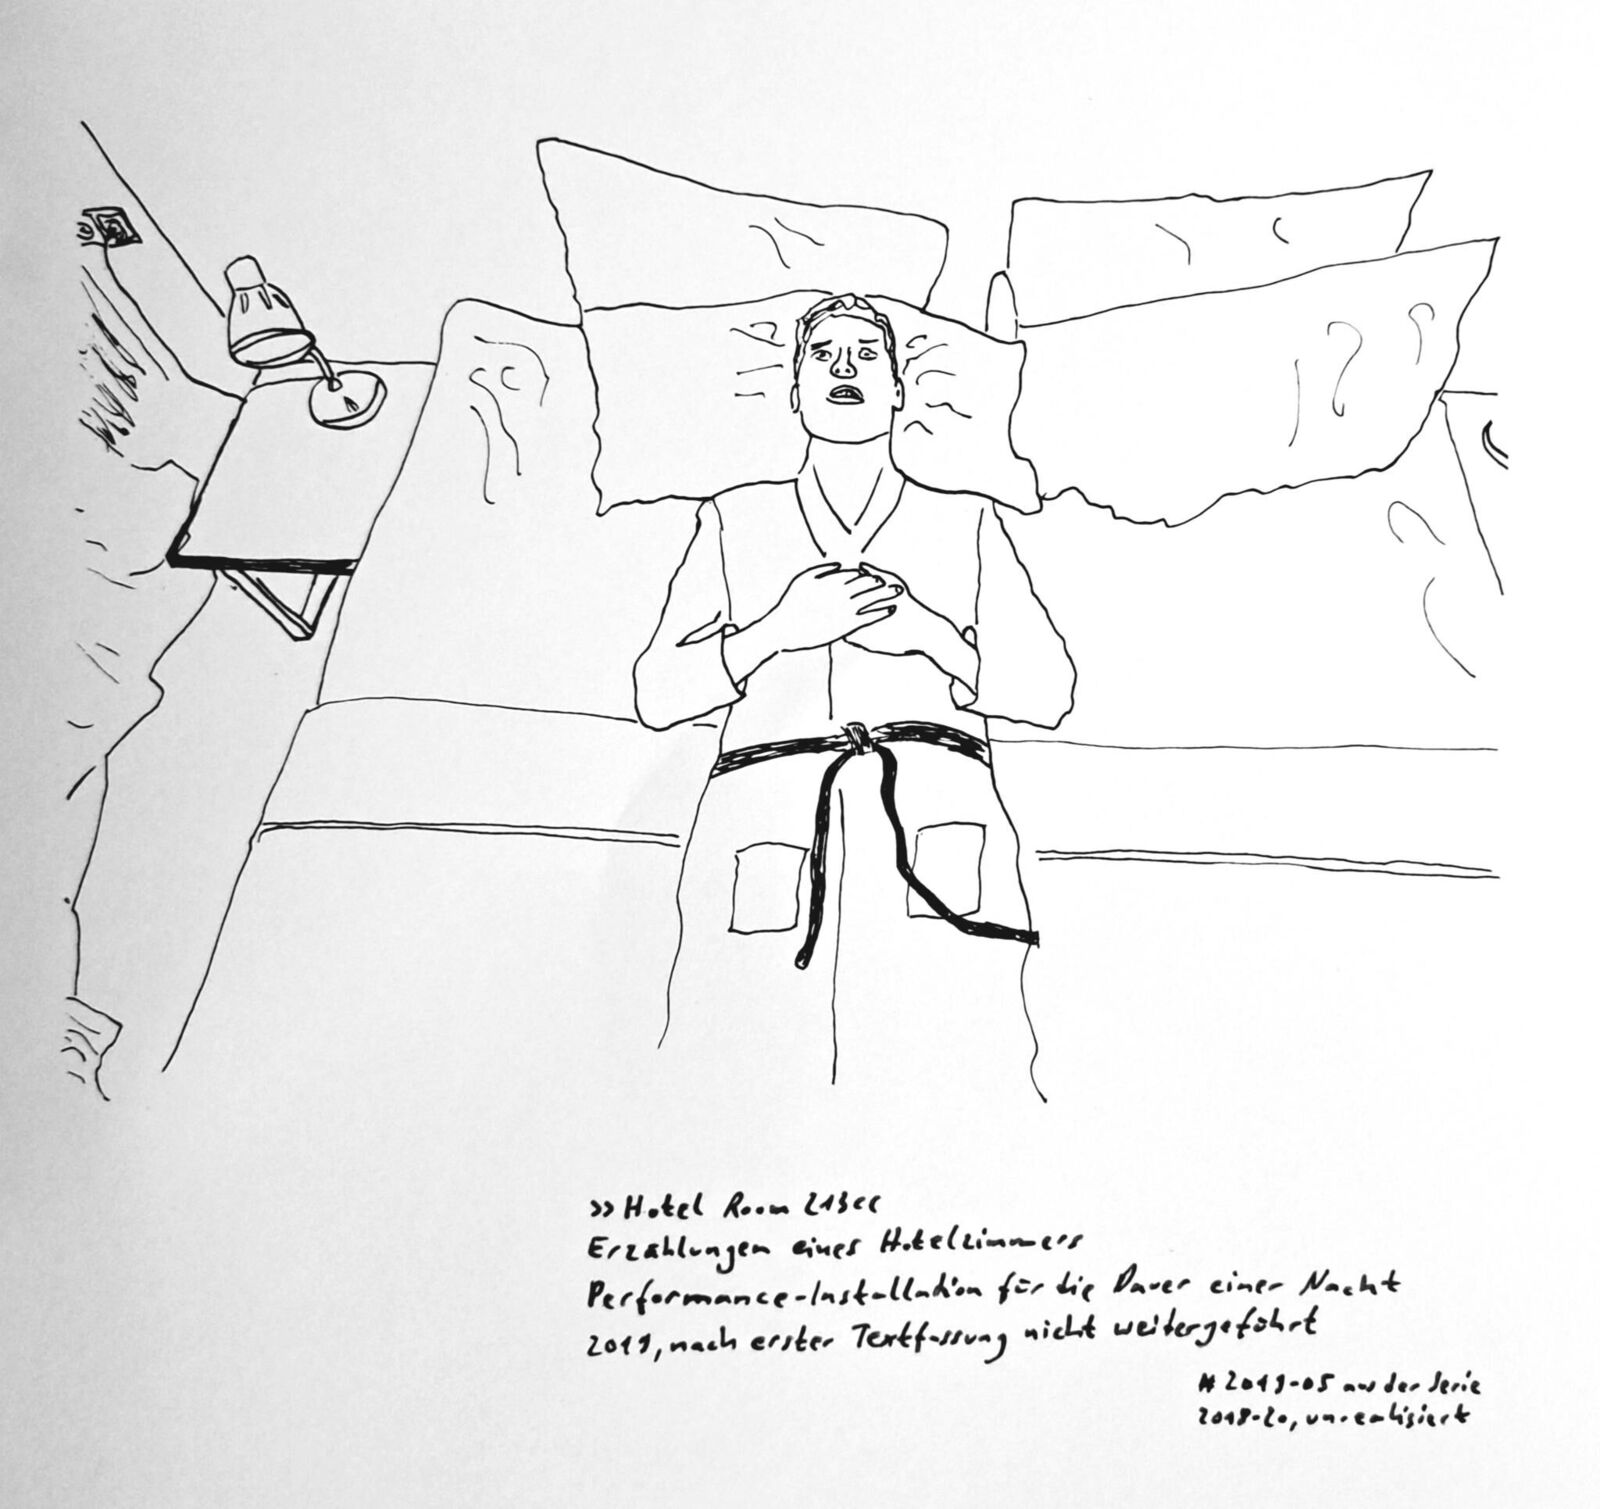 »Hotel Room 213«
Erzählungen eines Hotelzimmers
Performance-Installation für die Dauer einer Nacht
2019, nach erster Textfassung nicht weitergeführt
# 2019-05 aus der Serie
2018-20, unrealisiert